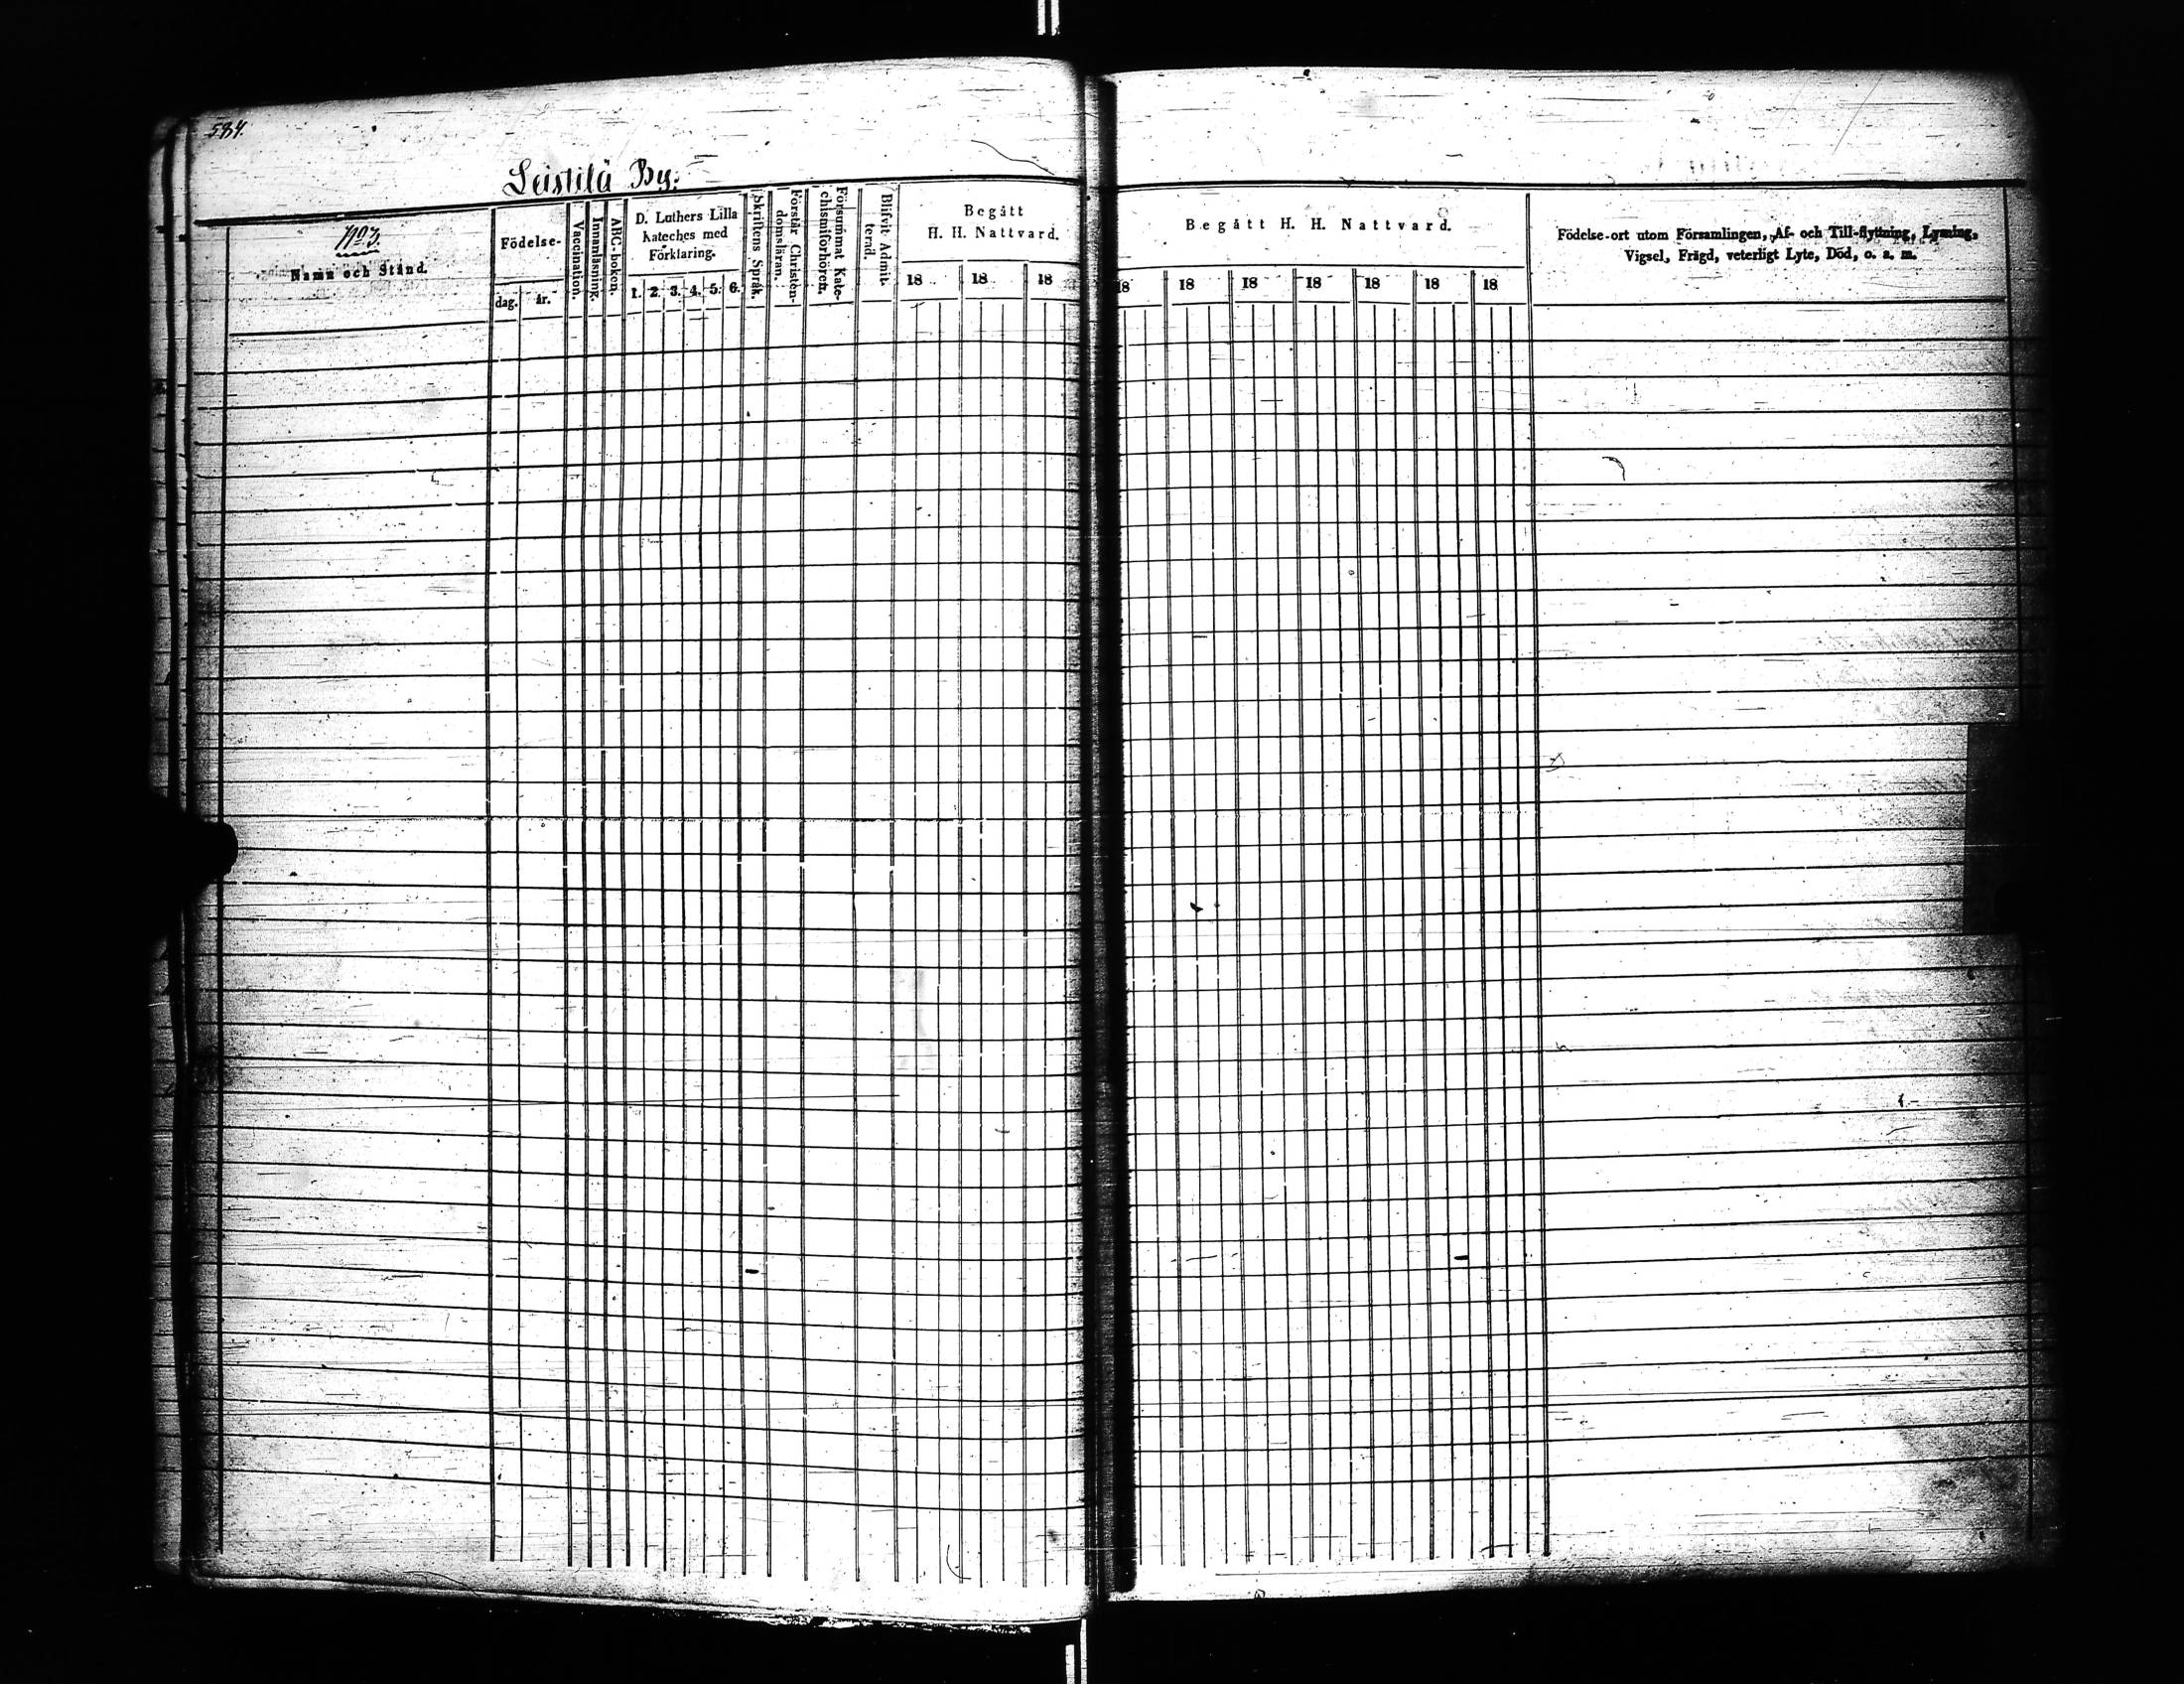 584.
Leistilä By.
No 3.
Namn och Stånd.
Födelse-
dag. år.
Vaccination.
Innanläsning.
ABC-boken.
D. Luthers Lilla
Kateches med
Förklaring.
1. 2. 3. 4. 5. 6.
Skriftens Språk.
Förstår Christen-
domsläran.
Försummat Kate-
chismiförhören.
Blifvit Admit-
terad.
Begått
H. H. Nattvard.
18 18 18
Begått H. H. Nattvard.
18 18 18 18 18 18 18
Födelse-ort utom Församlingen, Af- och Till-flyttning, Lysning,
Vigsel, Frägd, veterligt Lyte, Död, o. s. m.